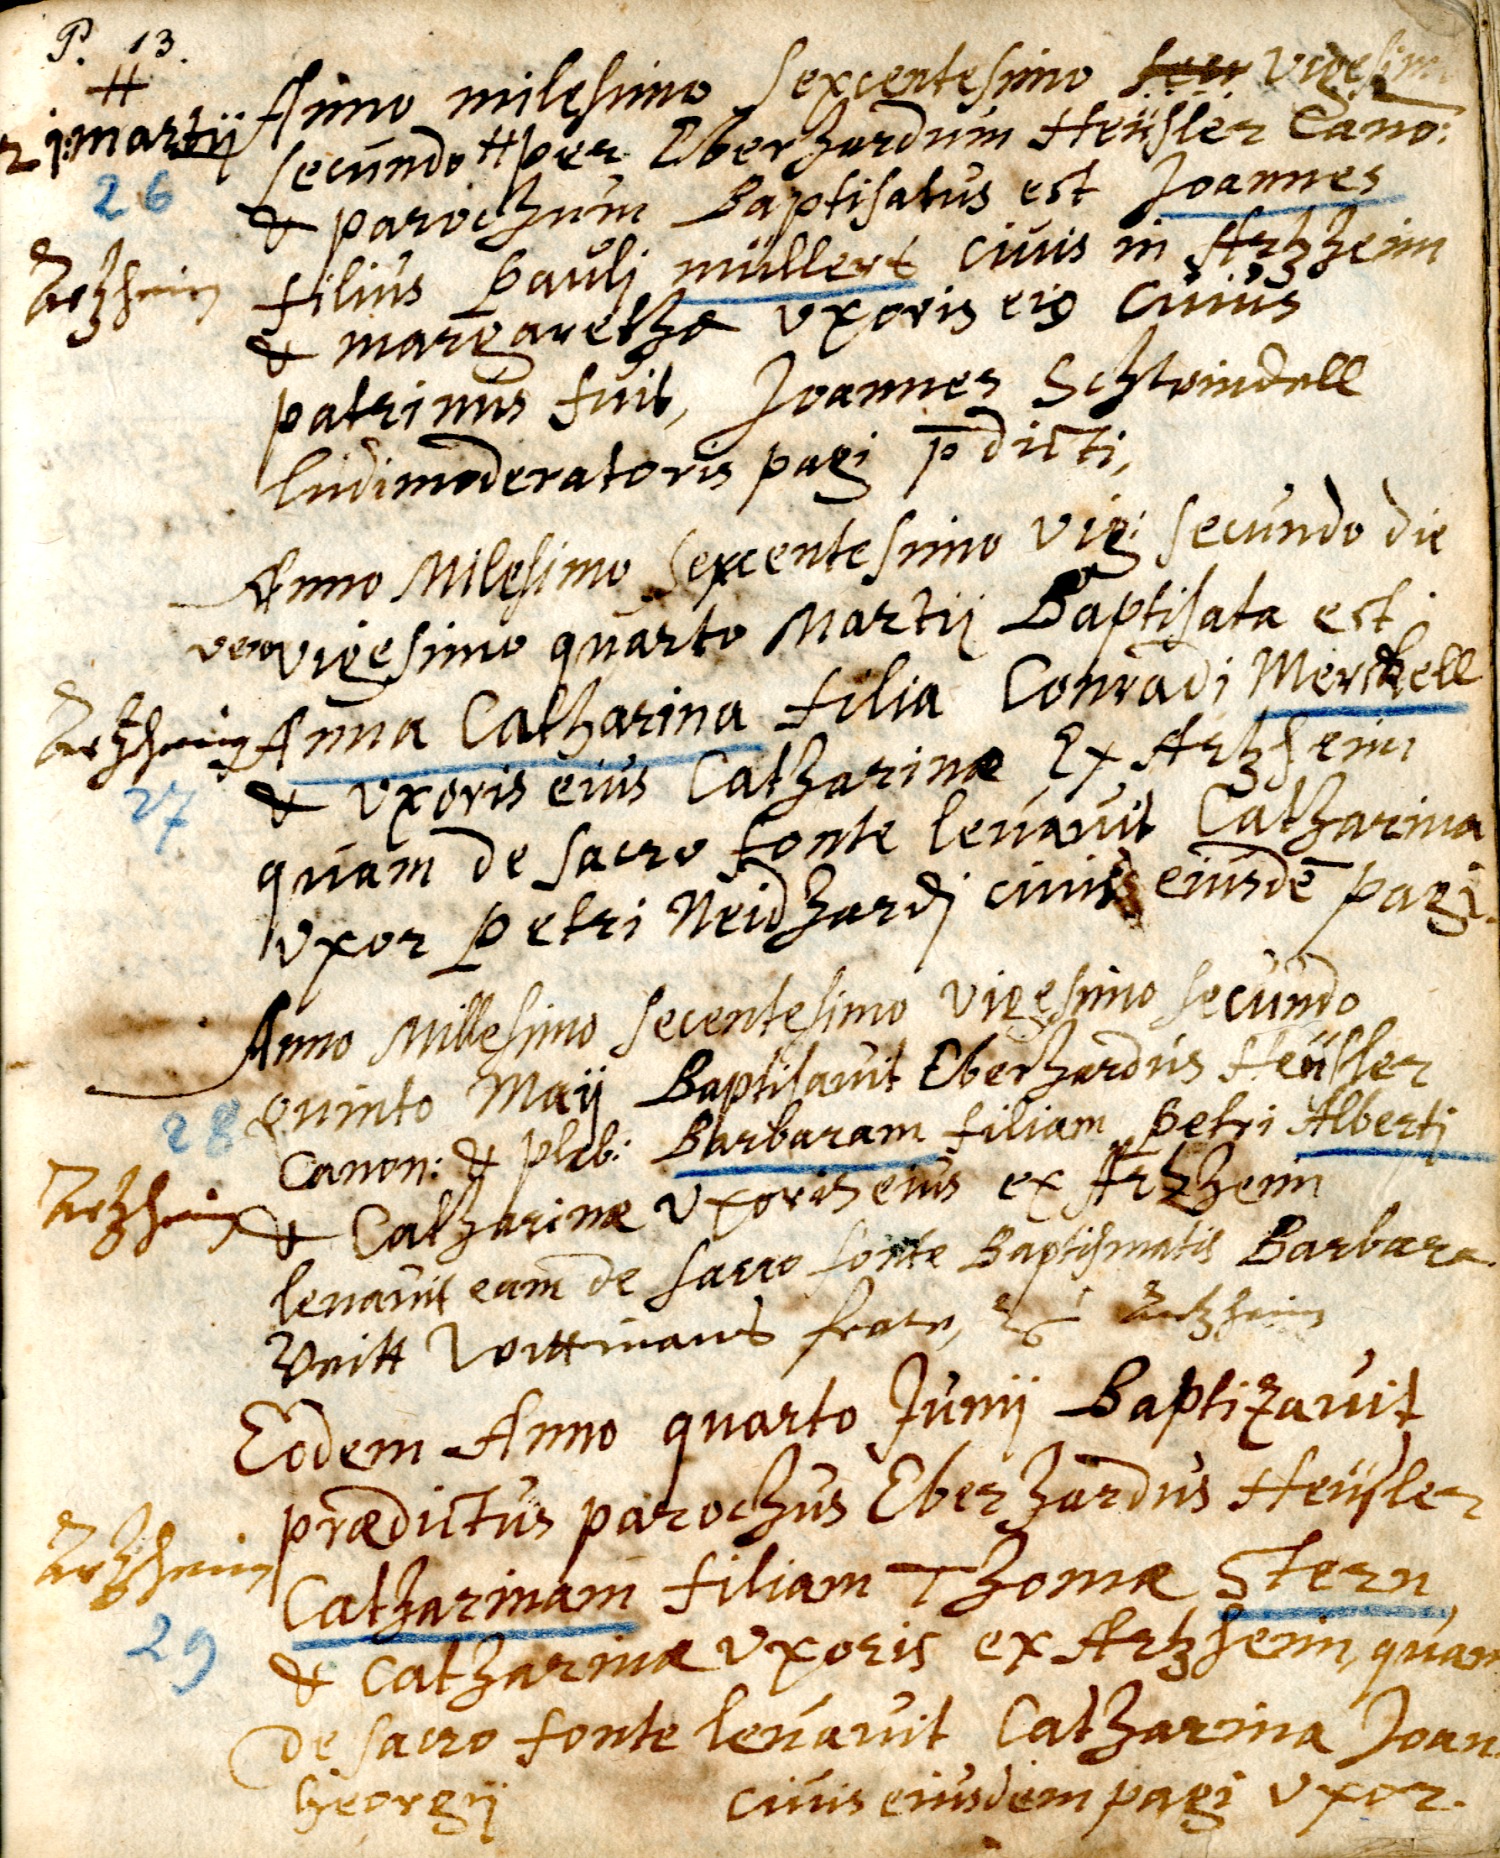 P. 13.
#
j. martij
Anno milesimo sexcentesimo vigesimo
secundo # per Eberhardum Heüsler Cano:
26
& parochum Baptisatus est Joannes
Artzheim
filius Pauli müllers ciuis in Artzheim
& margarethæ vxoris ei9 Cuius
patrinus fuit, Joannes Schwindell
ludimoderatoris pagi p̄dicti,
Anno Milesimo sexcentesimo vig: secundo die
vero vigesimo quarto Martij Baptisata est
Artzheim
Anna Catharina filia Conradi Merckell
27
& vxoris eius Catharinæ Ex Artzheim
quam de sacro fonte leuauit Catharina
vxor Petri Neidhardj ciuis eiusdē pagi.
Anno Millesimo secentesimo vigesimo secundo
quinto Maij Baptisauit Eberhardus Heüsler
28
Canon: & pleb: Barbaram filiam Petri Albertj
Artzheim
& Catharinæ vxoris eius ex Artzheim
leuauit eam de sacro fonte Baptismatis Barbara
Veitt Wittmans Artzheim
Eodem Anno quarto Junij Baptizauit
prædictus parochus Eberhardus Heüsler
Artzheim
Catharinam filiam Thomæ Stern
29
& Catharinæ vxoris ex Artzheim, quam
de sacro fonte leuauit Catharina Joan.
Georgij ciuis eiusdem pagi vxor.